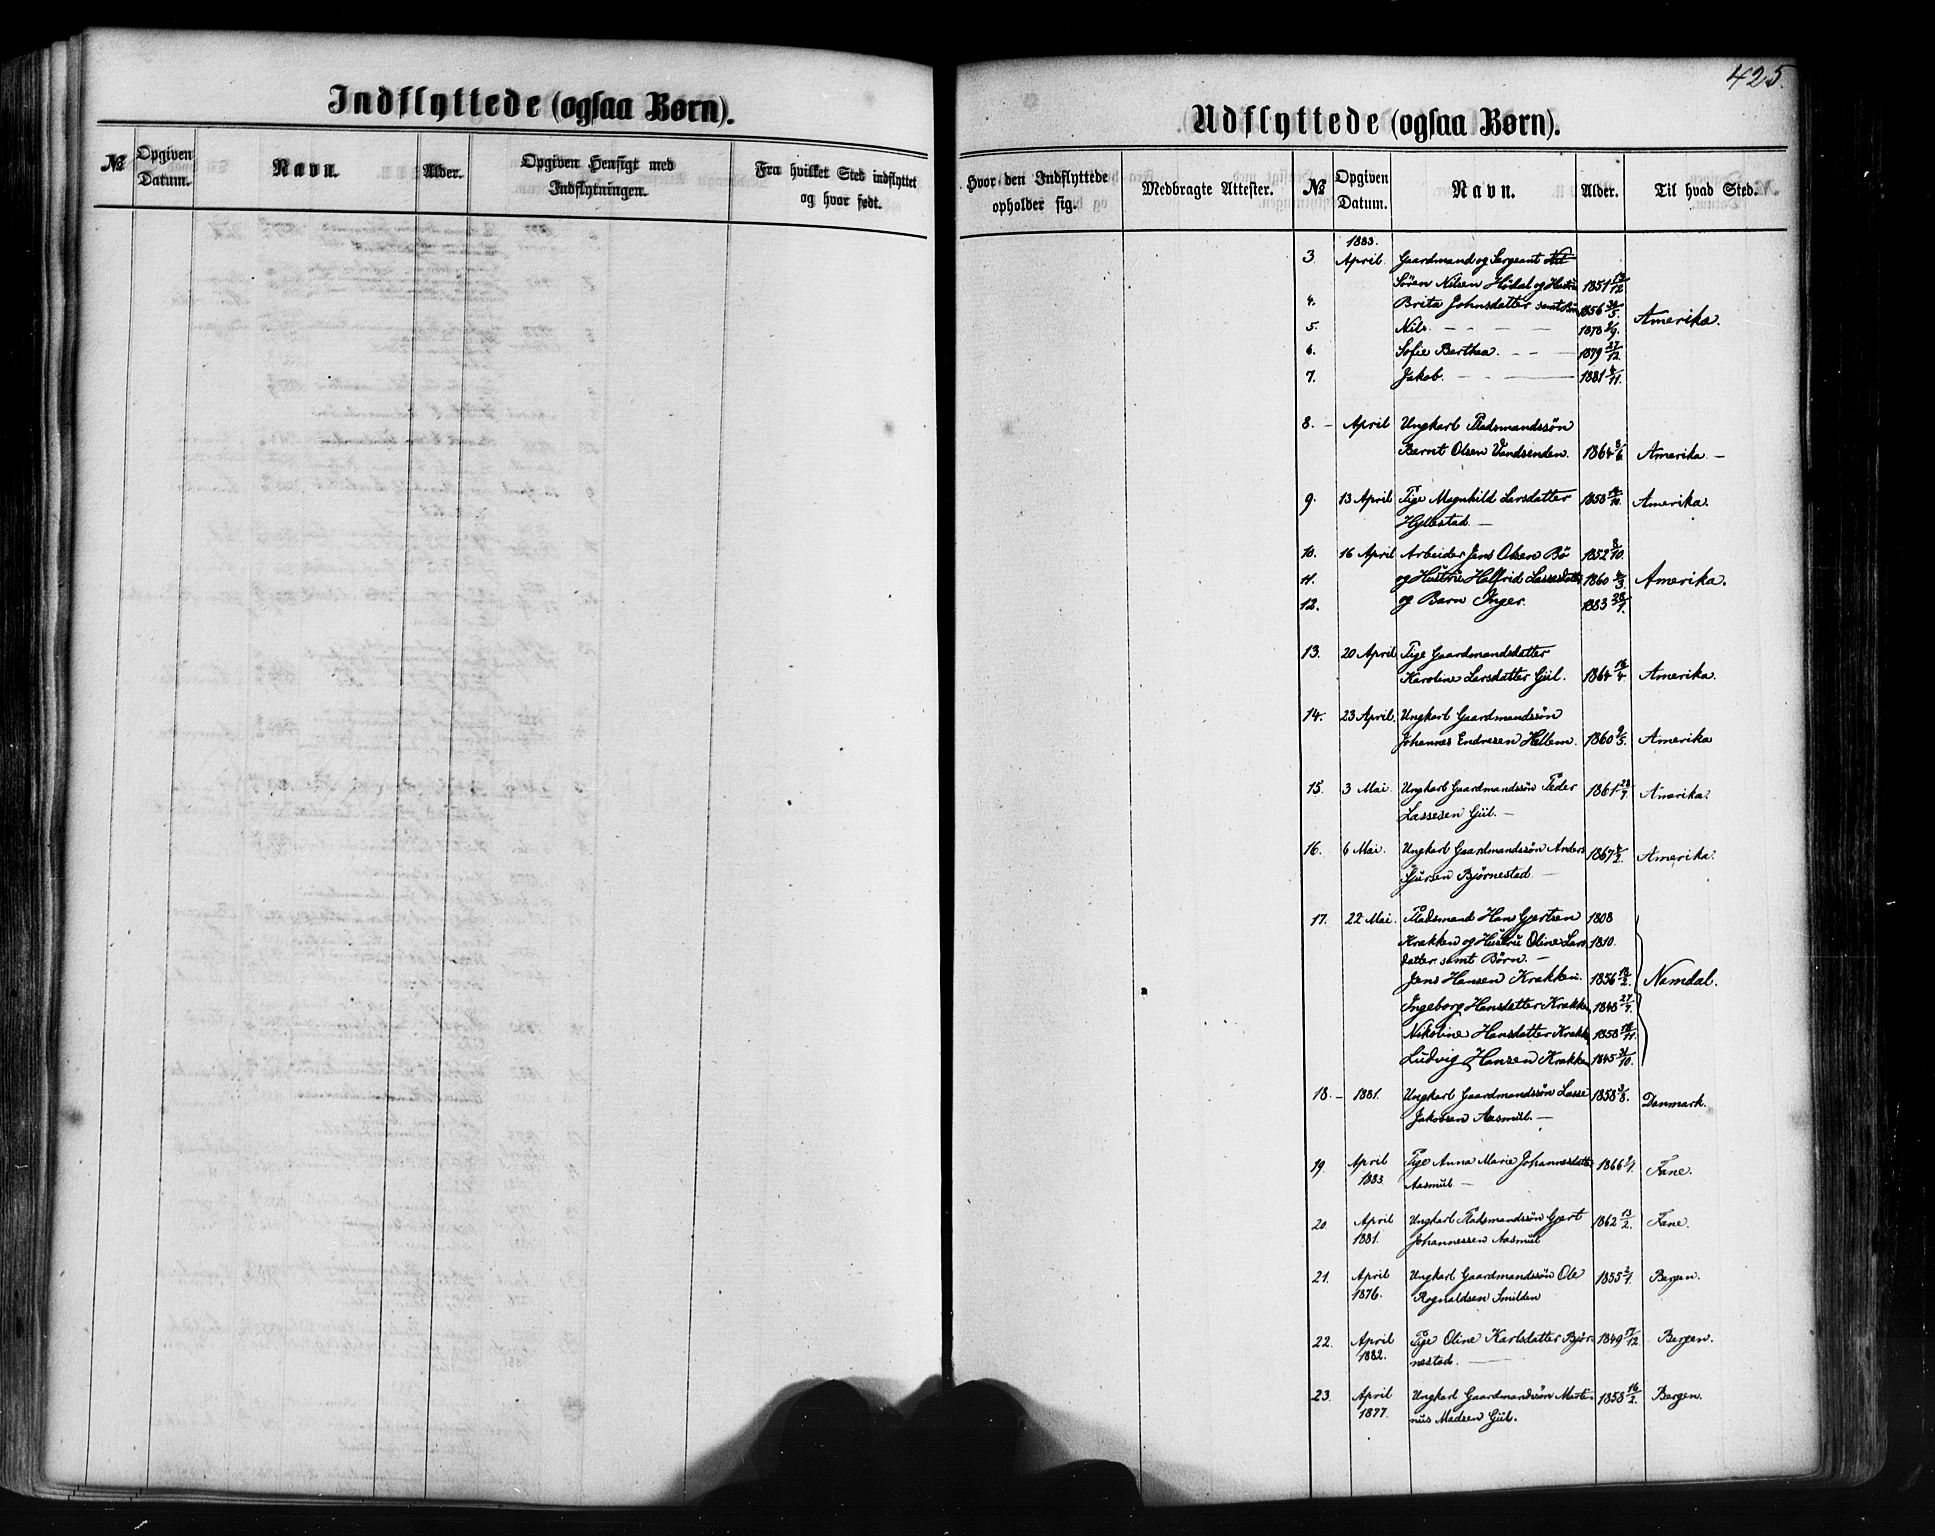 Indflyttede (ogsaa Børn).
№ Opgiven Datum. Navn. Alder. Opgiven Hensigt med Indflytningen. Fra hvilket Sted indflyttet og hvor født.
425.
Udflyttede (ogsaa Børn).
Hvor den Indflyttede opholder sig. Medbragte Attester. № Opgiven Datum. Navn. Alder. Til hvad Sted.
1883.
3. April Gaardmand og Sergeant
Søren Nilsen Hødal og Hustru 1851 13/12
4. Brita Johnsdatter samt Børn 1856 /5. Amerika.
5. Nils. — — — 1878 /9.
6. Sofie Berthea. — — 1879 27/12.
7. Jakob. — — 1881 /11.
8. – April Ungkarl Pladsmandssøn
Bernt Olsen Vandsenden. 1864 8/6. Amerika. –
9. 13 April Pige Magnhild Larsdatter 1858 /10. Amerika.
Hyllestad —
10. 16 April Arbeider Jens Olsen Bø 1852 8/10.
11. og Hustru Halfrid Lassesdatter 1860 /3 Amerika.
12. og Barn Inger. 1883 28/1.
13. 20 April Pige Gaardmandsdatter
Karoline Larsdatter Gül. 1864 16/4 Amerika.
14. 23 April. Ungkarl Gaardmandssøn
Johannes Endresen Hellem. 1860 9/5. Amerika
15. 3 Mai. Ungkarl Gaardmandssøn Peder 1861 28/7. Amerika.
Lassesen Gül. —
16. 6 Mai. Ungkarl Gaardmandssøn Anders 1867 /2. Amerika.
Sjursen Bjørnestad —
17. 22 Mai. Pladsmand Hans Gjertsen 1808
Krakken og Hustru Oline Lars 1810.
datter samt Børn. —
Jens Hansen Krakken. 1856 18/2. Namdal.
Ingeborg Hansdatter Krakken 1848 27/7.
Nikoline Hansdatter Krakk 1858 /11.
Ludvig Hansen Krakken 1845 31/10.
18. – 1881. Ungkarl Gaardmandssøn Lasse 1858 3/8. Danmark.
Jakobsen Aasmül. —
19. April Pige Anna Marie Johannesdatter 1866 /1. Fane.
1883. Aasmül —
20. April Ungkarl Pladsmandssøn Gjert 1862 13/2. Fane.
1881. Johannessen Aasmül
21. April Ungkarl Gaardmandssøn Ole 1855 2/1. Bergen.
1876. Rognaldsen Smilden
22. April Pige Oline Karlsdatter Bjør 1849 17/12 Bergen.
1882. nestad. —
23. April Ungkarl Gaardmandssøn Marti- 1858 16/2. Bergen.
1877. nus Madsen Gül.